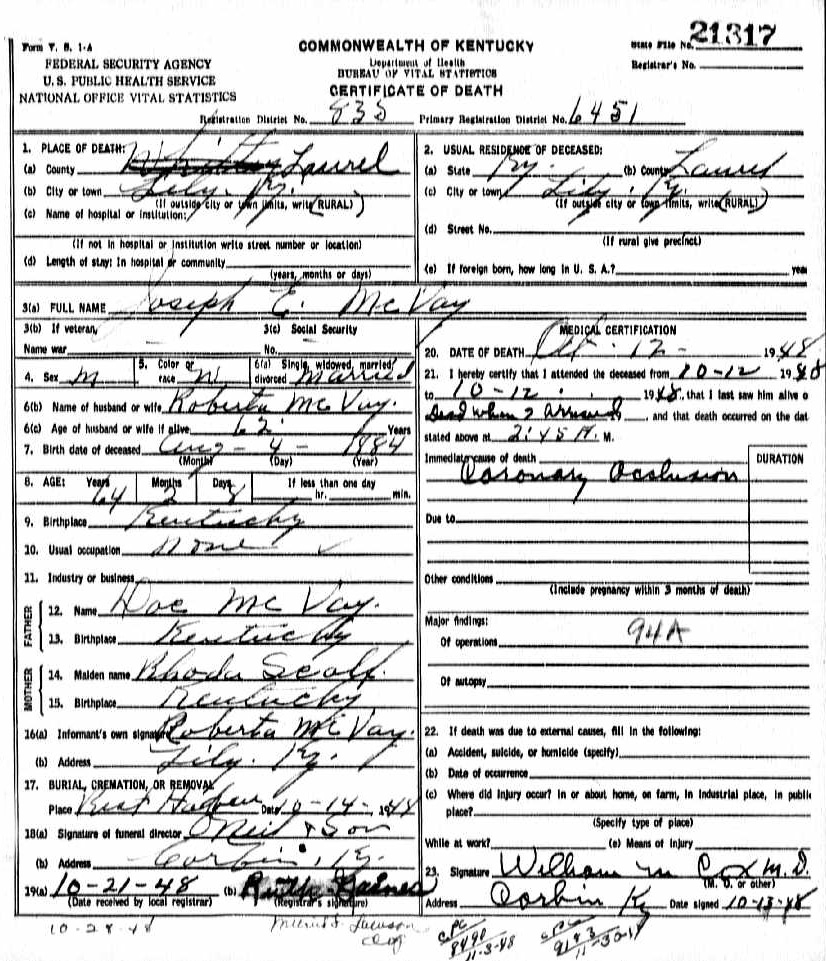 Form V. S. 1-A
FEDERAL SECURITY AGENCY
U. S. PUBLIC HEALTH SERVICE
NATIONAL OFFICE VITAL STATISTICS
COMMONWEALTH OF KENTUCKY
Department of Health
BUREAU OF VITAL STATISTICS
CERTIFICATE OF DEATH
State File No. 21317
Registrar's No.
Registration District No. 835 Primary Registration District No. 6451
1. PLACE OF DEATH:
(a) County Whitley Laurel
(b) City or town Lily. Ky.
(If outside city or town limits, write RURAL)
(c) Name of hospital or institution:
(If not in hospital or institution write street number or location)
(d) Length of stay: In hospital or community
(years, months or days)
2. USUAL RESIDENCE OF DECEASED:
(a) State Ky. (b) County Laurel
(c) City or town Lily. Ky.
(If outside city or town limits, write RURAL)
(d) Street No.
(If rural give precinct)
(e) If foreign born, how long in U. S. A.? year
3(a) FULL NAME Joseph E. McVay
3(b) If veteran,
Name war
3(c) Social Security
No.
4. Sex M
5. Color or race W
6(a) Single, widowed, married, divorced Married
6(b) Name of husband or wife Roberta McVay.
6(c) Age of husband or wife if alive 62 Years
7. Birth date of deceased Aug - 4 - 1884
(Month) (Day) (Year)
8. AGE: Years Months Days If less than one day
64 2 8 hr. min.
9. Birthplace Kentucky
10. Usual occupation none
11. Industry or business
FATHER
12. Name Doc McVay.
13. Birthplace Kentucky
MOTHER
14. Maiden name Rhoda Scalf.
15. Birthplace Kentucky
16(a) Informant's own signature Roberta McVay.
(b) Address Lily. Ky.
17. BURIAL, CREMATION, OR REMOVAL
Place Rest Haven Date 10-14-1948
18(a) Signature of funeral director O'Neil & Son
(b) Address Corbin, Ky.
19(a) 10-21-48 (b) Ruth
(Date received by local registrar) (Registrar's signature)
10-28-48
MEDICAL CERTIFICATION
20. DATE OF DEATH Oct. 12 - 1948
21. I hereby certify that I attended the deceased from 10-12 1948
to 10-12 1948, that I last saw him alive o
Dead when I arrived, and that death occurred on the dat
stated above at 2:45 A. M.
Immediate cause of death DURATION
Coronary Occlusion
Due to
Other conditions
(Include pregnancy within 3 months of death)
Major findings:
94A
Of operations
Of autopsy
22. If death was due to external causes, fill in the following:
(a) Accident, suicide, or homicide (specify)
(b) Date of occurrence
(c) Where did injury occur? In or about home, on farm, in industrial place, in public
place?
(Specify type of place)
While at work? (e) Means of injury
23. Signature William M Cox M.D.
(M. D. or other)
Address Corbin Ky Date signed 10-13-48
8490
11-3-48